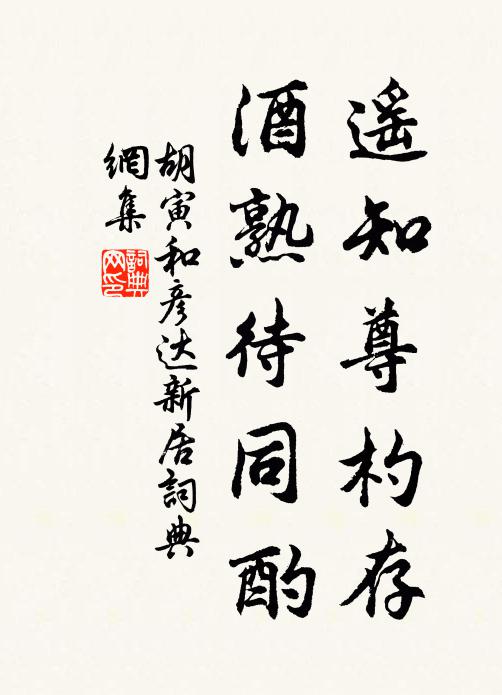 遥知尊杓存
酒熟待同酌
胡寅和彦达新居詞典
網集
詞典
网印